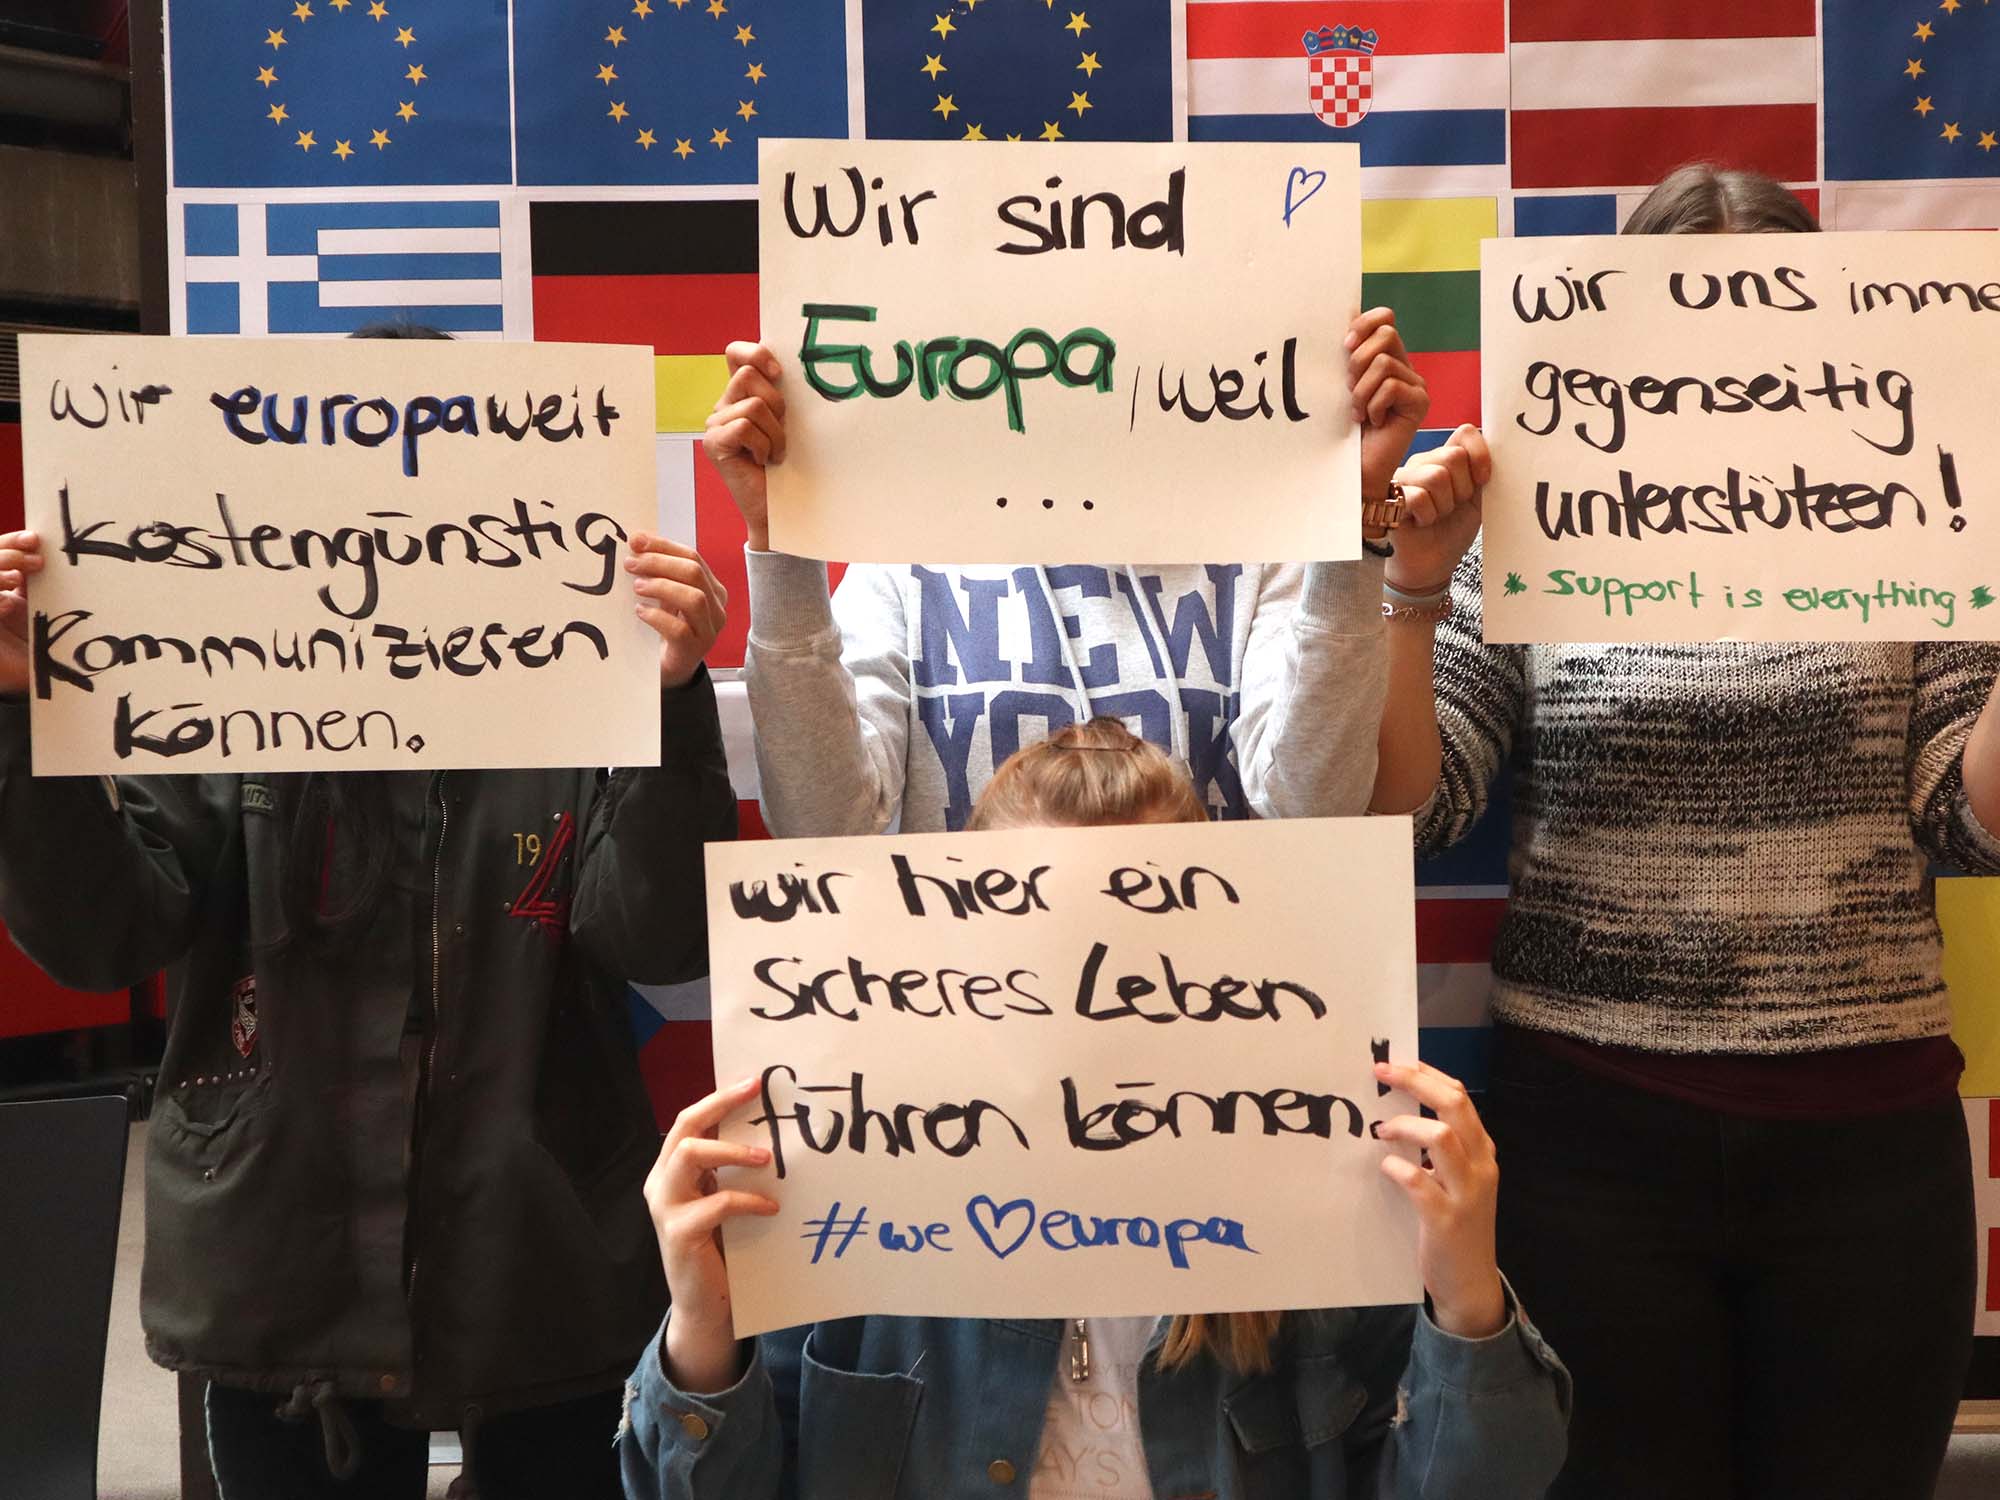 Wir sind
Europa, weil
...
wir europaweit
kostengünstig
kommunizieren
können.
wir uns imme
gegenseitig
unterstützen!
* support is everything *
wir hier ein
sicheres Leben
führen können!
#we ♡ europa
NEW
YORK
19